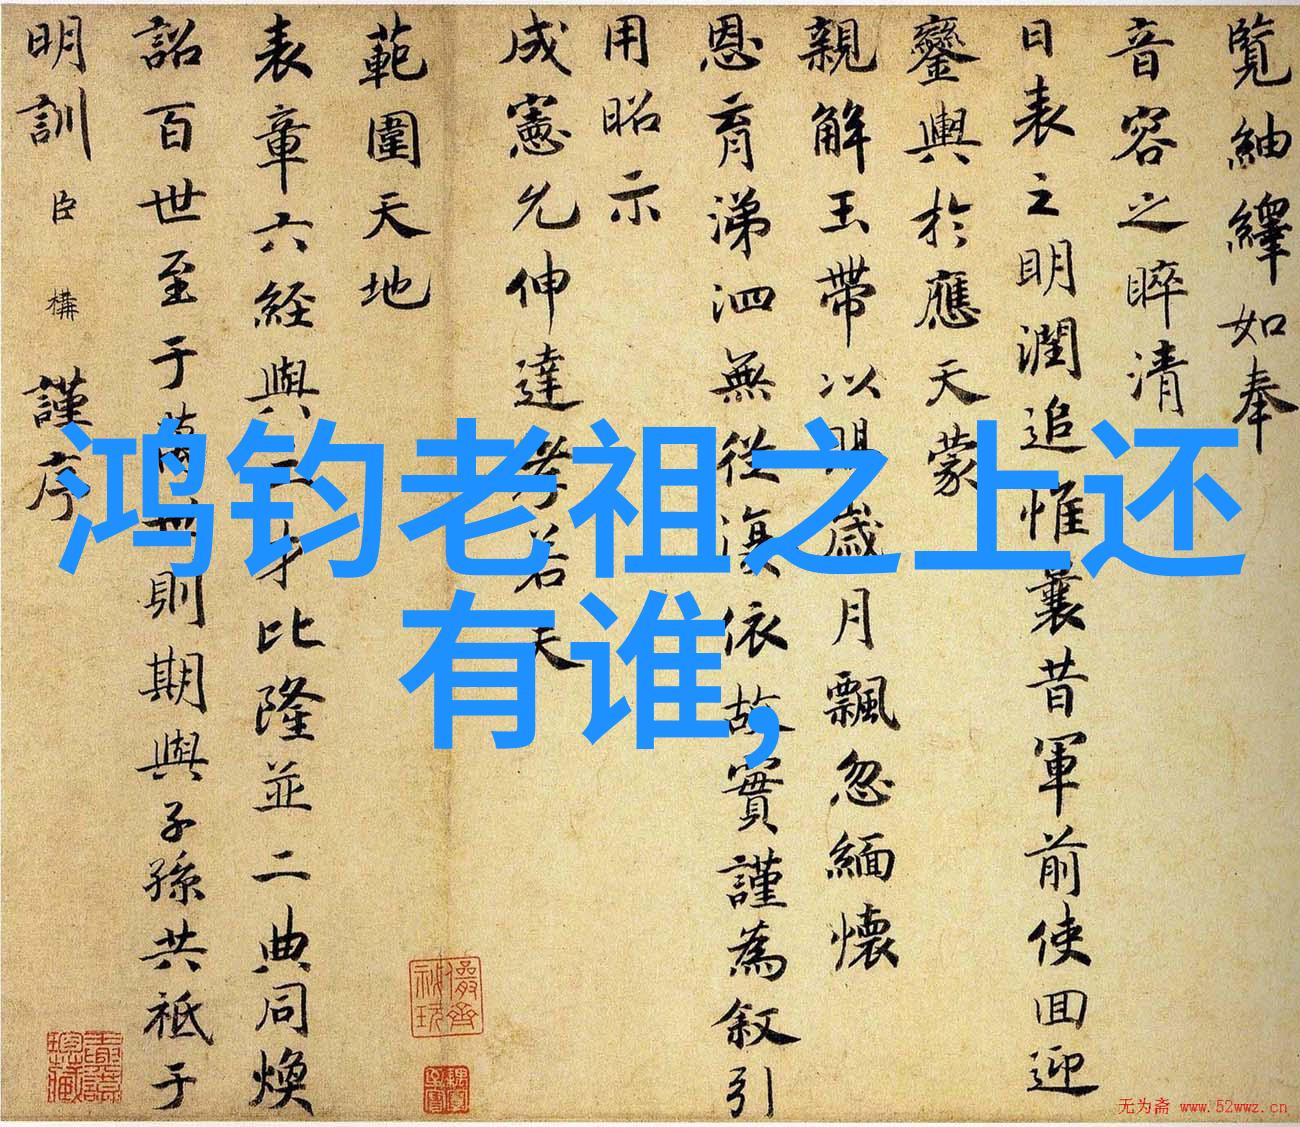 覽紬繹如奉
音容之睟清
日表之明潤追惟曩昔軍前使回迎
鑾輿於應天蒙
親解玉帶以賜歲月飄忽緬懷
恩育涕泗無從湲依故實謹為叙引
用昭示
成憲允伸達孝若天
範圍天地
表章六経與三才比隆並二典同煥
詔百世至于萬世則期與子孫共祗于
明訓臣構謹序
鸿钧老祖之上还
有谁,
无为斋 www.52wwz.cn